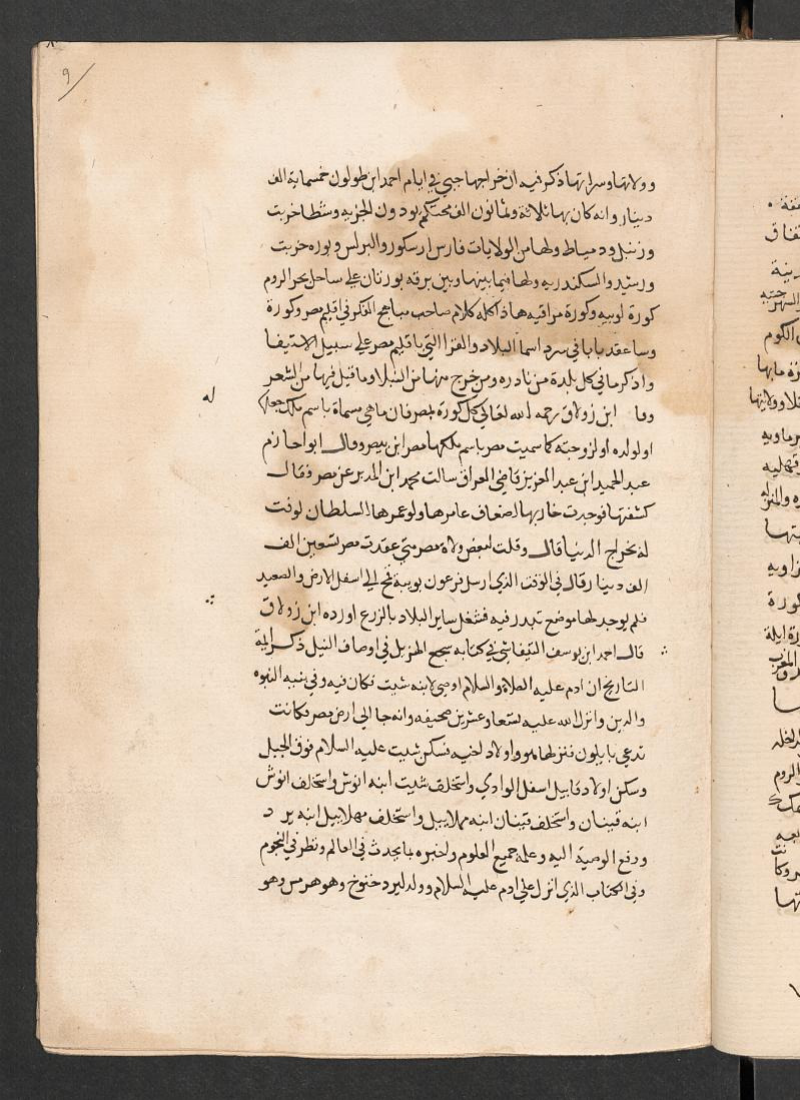 ٩
وولاتها وسراتها ذكر فيه ان خراجها جبي في ايام احمد ابن طولون خمسماية الف
دينار وانه كان بها ثلاثة وثمانون الف محتكم يودون الجزيه وشطا خربت
ودمياط ولها من الولايات فارس ارسكور والبرلس وبوره خربت
ورشيد والسكندريه ولها فيما بينها وبين برقه بورتان على ساحل بحر الروم
كورة لوبيه وكورة مراقيه هذا كله كلام صاحب مباهج الفكر في اقليم مصر وكورة
وساعقد بابا في سرد اسما البلاد والقرا التي باقليم مصر على سبيل الاستيفا
واذكر ما في كل بلدة من نادره ومن خرج منها من النبلا وما قيل فيها من الشعر
وقا ابن زولاق رحمه الله تعالى كل كورة بمصر فان ما هي مسماة باسم ملك جعلها
له
او لولده او لزوجته كما سميت مصر باسم ملكها مصر ابن بيصر وقال ابوا حازم
عبد الحميد ابن عبد العزيز قاضي العراق سالت محمد ابن المدبر عن مصر فقال
كشفتها فوجدت خاربها اضعاف عامرها ولو عمرها السلطان لوفت
له بخراج الدنيا قال وقلت لبعض ولاة مصر متى عقدت مصر تسعين الف
الف دينار قال في الوقت الذي ارسل فرعون بويبة قمح الى اسفل الارض والصعيد
فلم يوجد لها موضع تبدر فيه فشغل ساير البلاد بالزرع اورده ابن زولاق
قال احمد ابن يوسف التيفاشي في كتابه سجع الهزيل في اوصاف النيل ذكر ايمة
التاريخ ان ادم عليه الصلاة والسلام اوصي لابنه شيت فكان فيه وفي بنيه النبوه
والدين وانزل الله عليه تسعا وعشرين صحيفه وانه جا الى ارض مصر وكانت
تدعي بابلون فنزلها هو واولاد اخيه فسكن شيت عليه السلام فوق الجبل
وسكن اولاد قابيل اسفل الوادي واستخلف شيت ابنه انوش واستخلف انوش
ابنه قينان واستخلف قينان ابنه مهلاييل واستخلف مهلاييل ابنه يرد
ودفع الوصية اليه وعلمه جميع العلوم واخبره بما يحدث في العالم ونظر في النجوم
وفي الكتاب الذي انزل على ادم عليه السلام وولد ليرد خنوخ وهو هرمس وهو